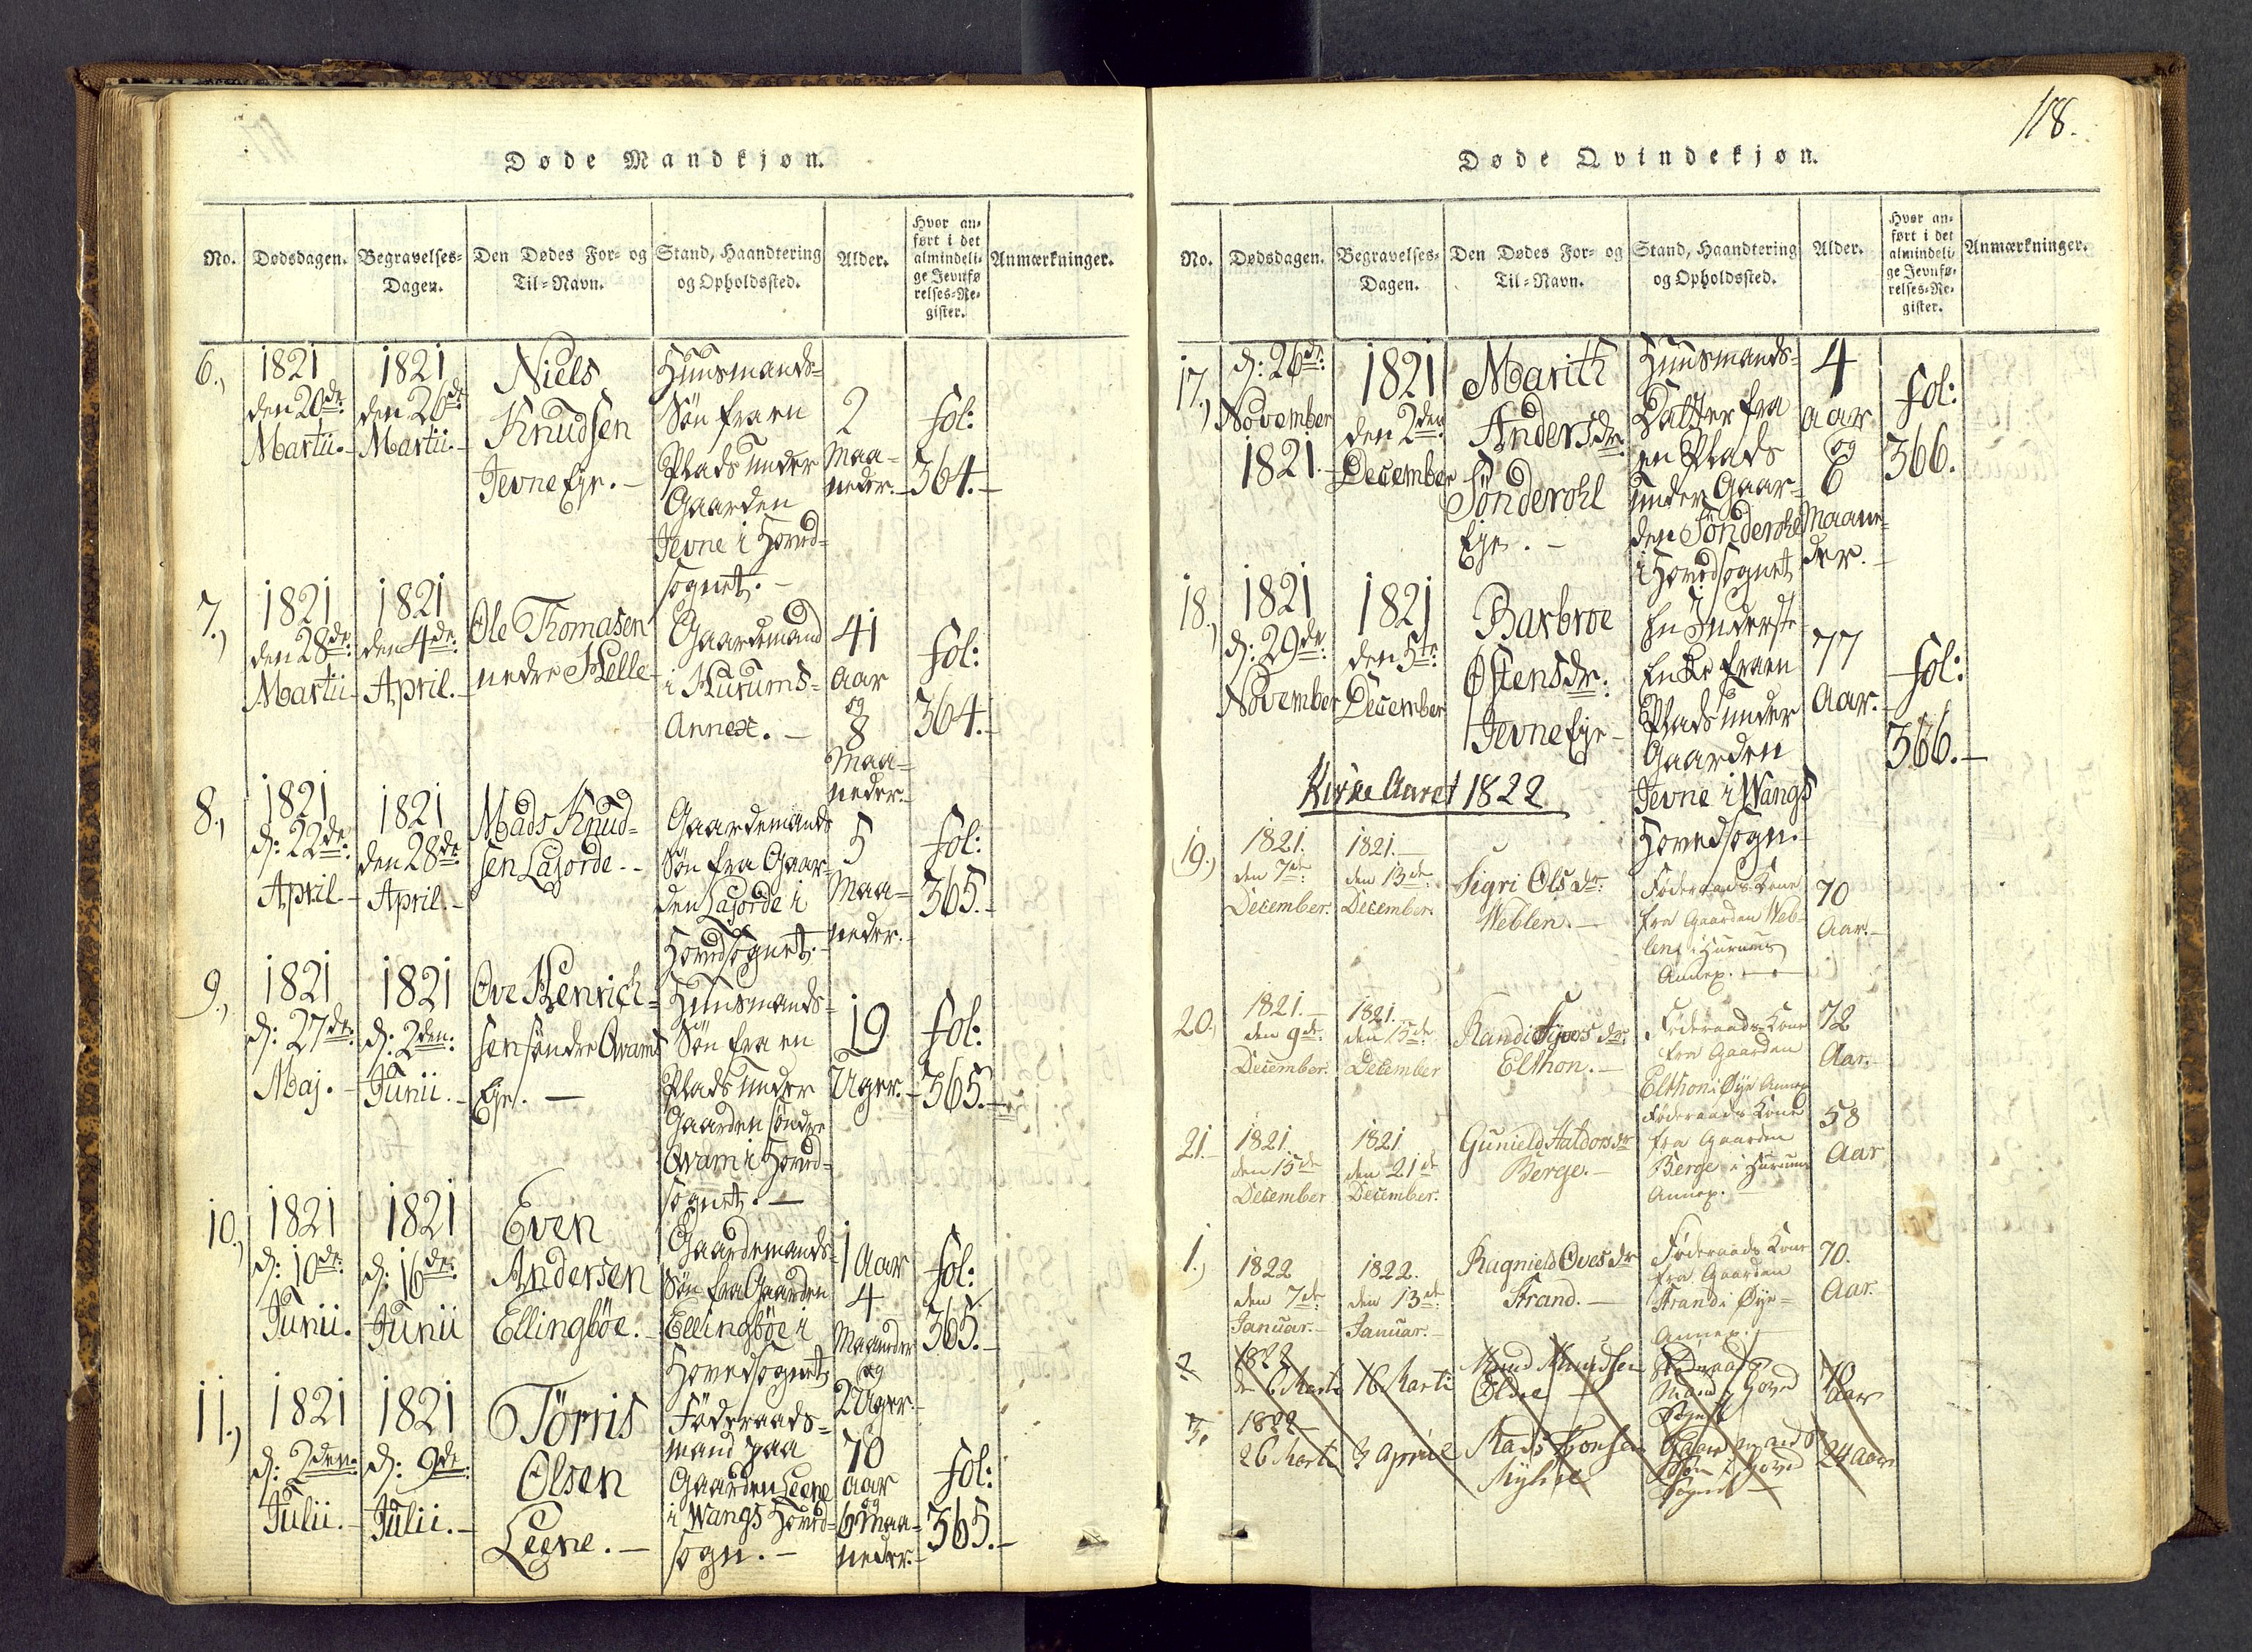 Døde Mandkjøn.
No.
Dødsdagen.
Begravelses-
Dagen.
Den Dødes For- og
Til-Navn.
Stand, Haandtering
og Opholdssted.
Alder.
Hvor an-
ført i det
almindeli-
ge Jevnfø-
relses-Re-
gister.
Anmærkninger.
6.,
1821
den 20de:
Martii.-
1821
den 26de
Martii.-
Niels
Knudsen
Jevne Eje.-
Huusmands-
Søn fra en
Plads under
Gaarden
Jevne i Hoved-
sognet.-
2
Maa-
neder.-
fol:
364.-
7.,
1821
den 28de:
Martii
1821
den 4de:
April.-
Ole Thomasen
nedre Helle
Gaardmand
i Hurums-
Annex.-
41
Aar
og
8
Maa-
neder.-
fol:
364.-
8.,
1821
d: 22de:
April
1821
den 28de
April.-
Mads Knud-
sen Lajorde.-
Gaardemands
Søn fra Gaar-
den Lajorde i
Hovedsognet.-
5
Maa-
neder.-
fol:
365.-
9.,
1821
d: 27de:
Maj.-
1821
d: 2den:
Junii.-
Ove Henrich-
sen søndre Qvams
Eje.-
Huusmands-
Søn fra en
Plads under
Gaarden søndre
Qvam i Hoved-
sognet.-
19
Uger.-
fol:
365.-
10.,
1821
d: 10de:
Junii.
1821
d: 16de:
Junii
Even
Andersen
Ellingböe.-
Gaardemands-
Søn fra Gaarden
Ellingböe i
Hovedsognet
1 Aar
4
Maaneder
og
2 Uger.-
fol:
365.-
11.,
1821
d: 2den:
Julii.-
1821
d: 9de:
Julii.-
Törris
Olsen
Leene.-
Föderaads-
mand paa
Gaarden Leene
i Wangs Hoved-
sogn.-
70
Aar
og
6 Maa-
neder.-
fol:
365.-
118.
Døde Qvindekjøn.
No.
Dødsdagen.
Begravelses-
Dagen.
Den Dødes For- og
Til-Navn.
Stand, Haandtering
og Opholdssted.
Alder.
Hvor an-
ført i det
almindeli-
ge Jevnfø-
relses-Re-
gister.
Anmærkninger.
17.,
d: 26de:
November
1821.-
1821
den 2den
December
Marith
Andersdr:
Sönderohl
Eje.-
Huusmands-
Datter fra
en Plads
under Gaar-
den Sönderohl
i Hovedsognet
4
Aar
og
6
Maane-
der.-
fol:
366.
18.,
1821
d: 29de:
November
1821
den 5te:
December
Barbroe
Østensdr:
Jevne Eje-
En Inderste
Enke fra en
Plads under
Gaarden
Jevne i Wangs
Hovedsogn.-
77
Aar.-
fol:
366.-
Kirke Aaret 1822
19.,
1821.
den 7de:
December.
1821.-
den 13de:
December.
Sigri Olsdr:
Weblen.-
Föderaads-Kone
fra Gaarden Web-
len i Hurums
Annex.-
70
Aar.-
20.,
1821.-
den 9de:
December.
1821.-
den 15de
December
Randi dr:
Elthon.-
Föderaads-Kone
fra Gaarden
Elthon i Øye Annex
72
Aar.-
21.-
1821.
den 15de
December
1821
den 21de
December.
Gunield Haldorsdr
Berge.-
Föderaads Kone
fra Gaarden
Berge i Hurums
Annex.-
58
Aar
1.,
1822
den 7de:
Januar.-
1822.
den 13de:
Januar.-
Rugnield Ovesdr
Strand.-
Föderaads Kone
fra Gaarden
Strand i Øye-
Annex.-
70.
Aar.
2
1822
de 6 Marti
16 Marti
Knud Knudsen
Mand i Hoved
Sognet
70
Aar
3.
1822
26 Marti
3 Aprill
Mads
Gaardmands
Søn i Hoved
Sognet
24 Aar